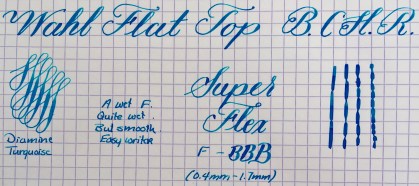 Wahl Flat Top B.C.H.R.
Diamine
Turquoise
A wet F.
Quite wet.
But smooth
Easy writer
Super
Flex
F - BBB
(0.4mm-1.7mm)